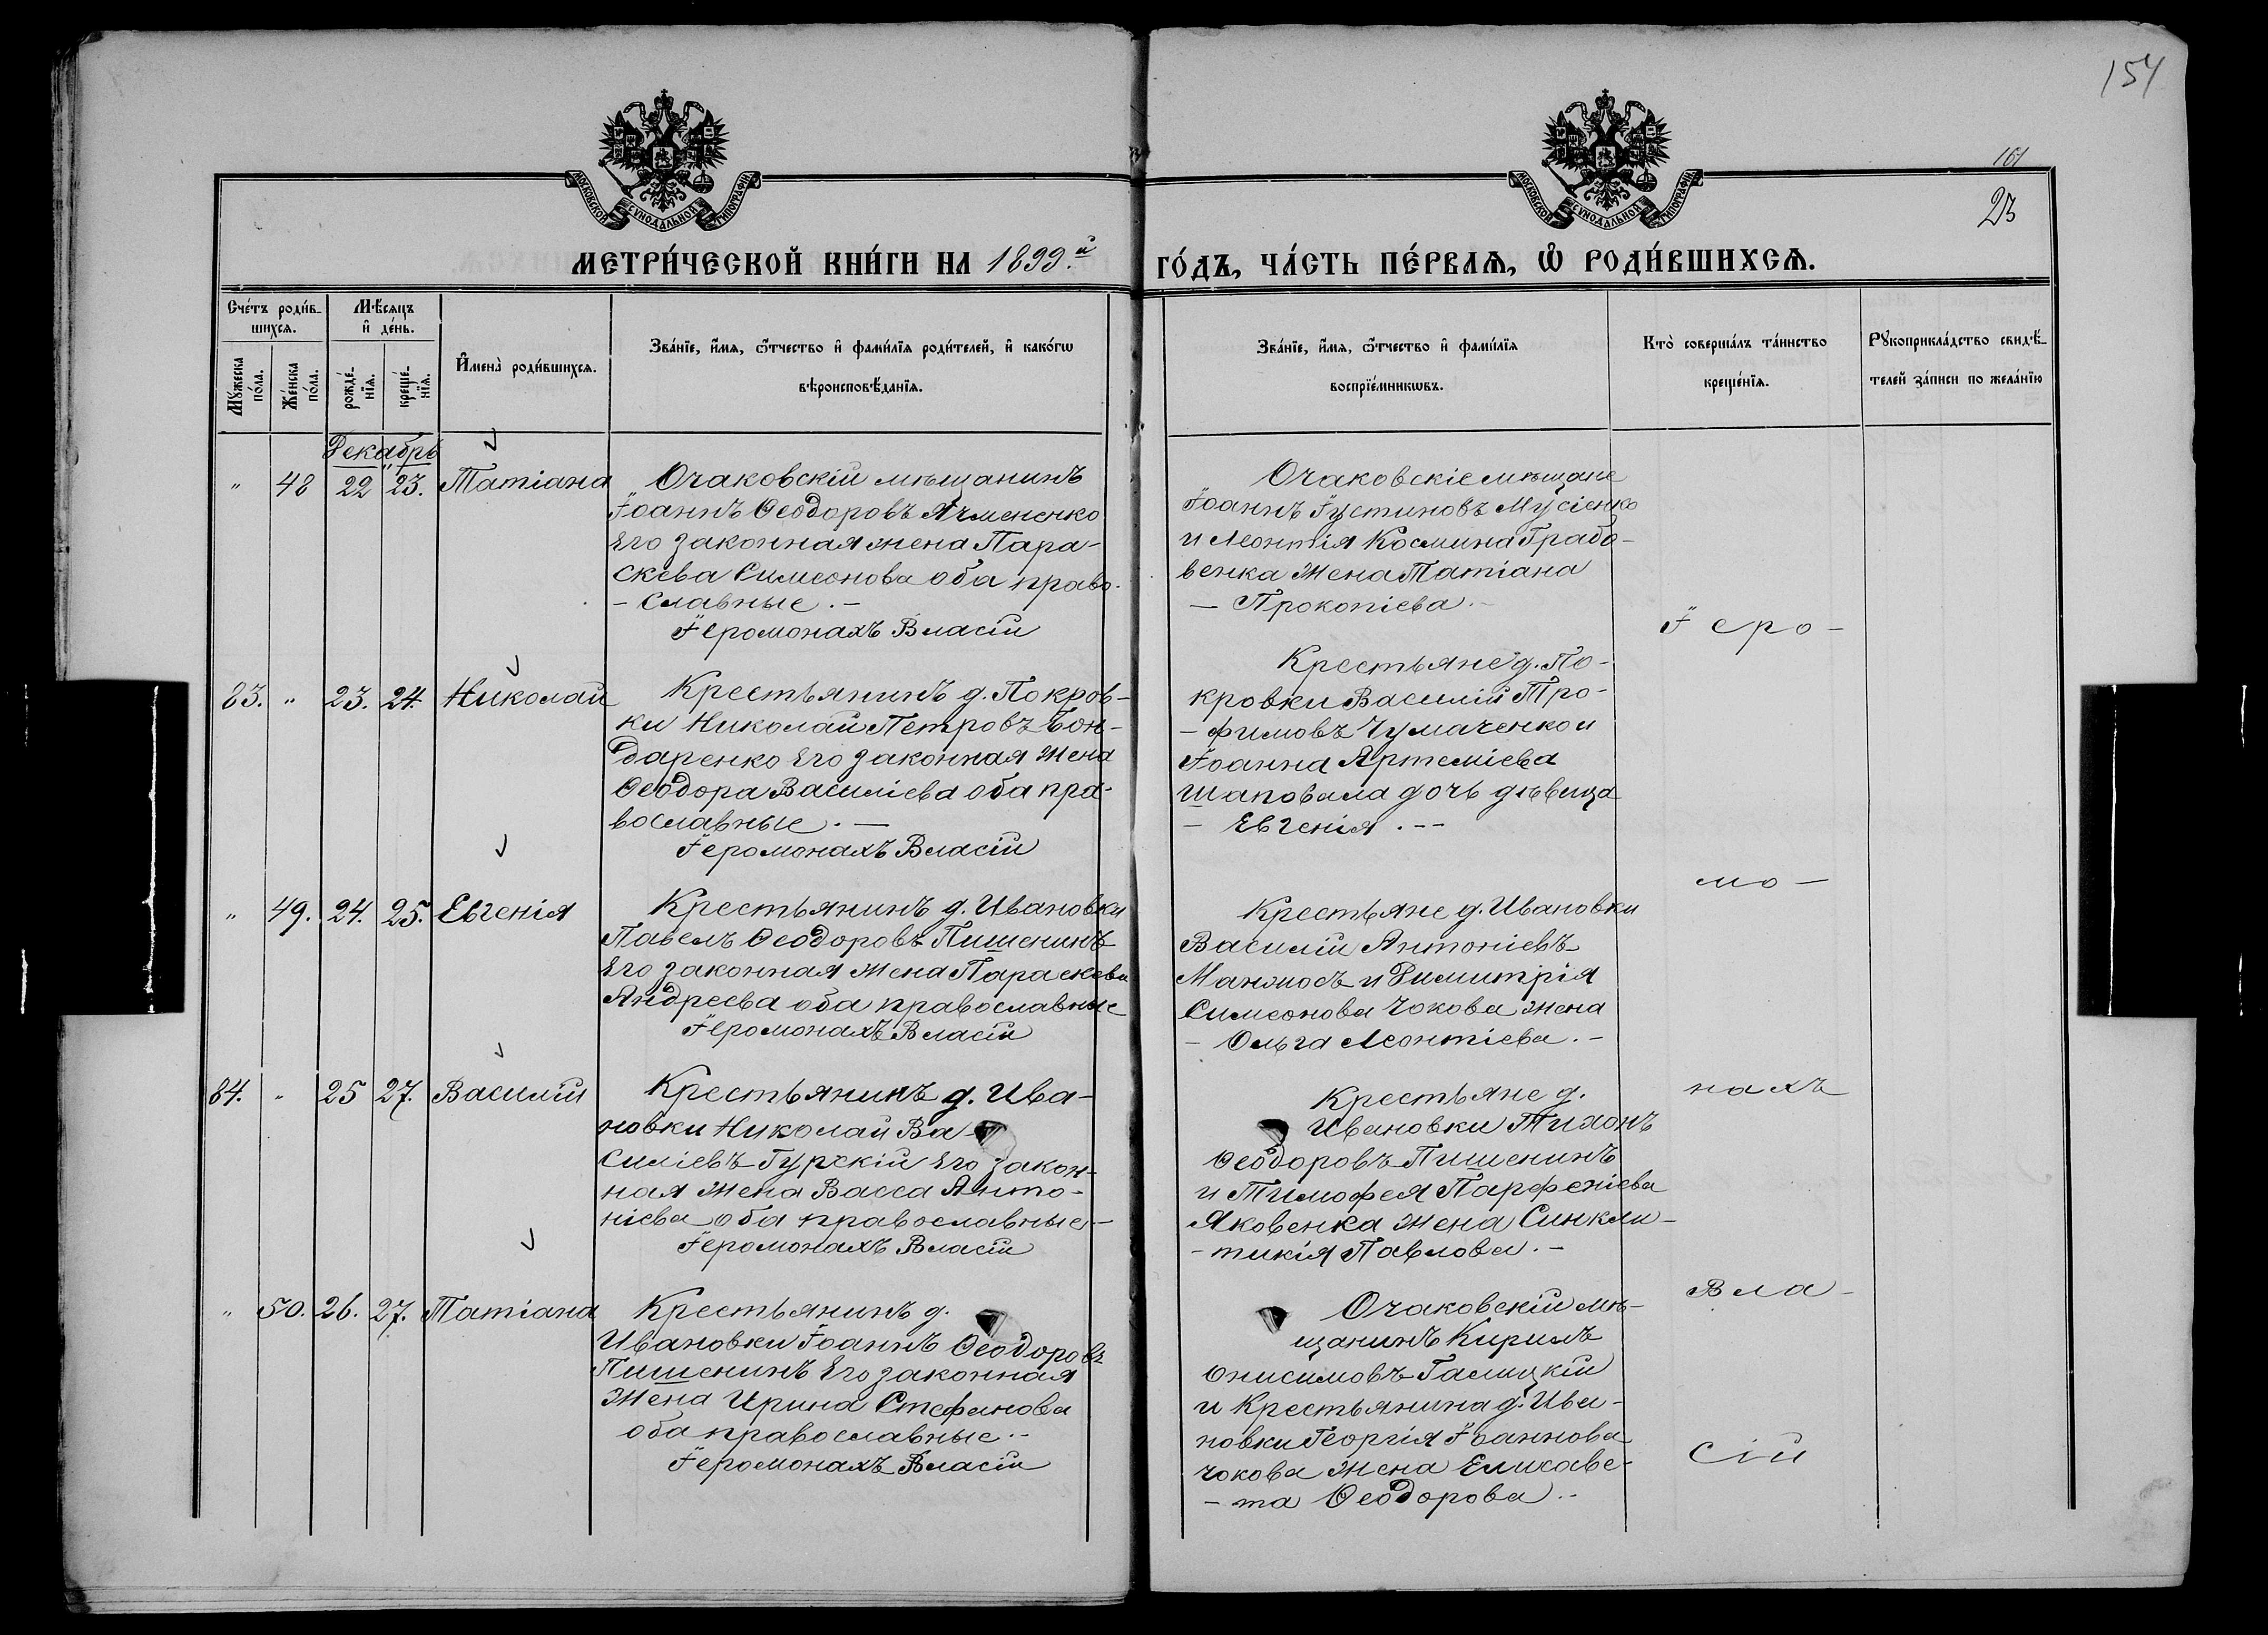 154
161
23
МОСКОВСКОЙ СУНОДАЛЬНОЙ ТИПОГРАФІИ
МОСКОВСКОЙ СУНОДАЛЬНОЙ ТИПОГРАФІИ
МЕТРИ́ЧЕСКОЙ КНИ́ГИ НА 1899.й ГО́ДЪ, ЧА́СТЬ ПЕ́РВАѦ, Ѽ РОДИ́ВШИХСѦ.
Сче́тъ роди́в-
шихсѧ.
Мѣ́сѧцъ
и҆ де́нь.
Мꙋ́жеска
по́ла.
Же́нска
по́ла.
рожде́-
нїѧ.
креще́-
нїѧ.
И҆мена̀ роди́вшихсѧ.
Зва́нїе, и҆́мѧ, ѻ҆́тчество и҆ фами́лїѧ роди́телей, и҆ како́гѡ
вѣроисповѣ́данїѧ.
Зва́нїе, и҆́мѧ, ѻ҆́тчество и҆ фами́лїѧ
воспрїе́мникѡвъ.
Кто̀ соверша́лъ та́инство
креще́нїѧ.
Рꙋкоприкла́дство свидѣ́-
телей за́писи по жела́нїю
Декабрь
" 48 22 23. Татіана
Очаковскій мѣщанинъ
Іоаннъ Ѳеодоровъ Ячмененко
Его законная жена Пара-
скева Симеонова оба право-
- славные. -
Іеромонахъ Власій
Очаковскіе мѣщане
Іоаннъ Іустиновъ Мусіенко
и Леонтія Космина Грабо-
венка жена Татіана
- Прокопіева. -
83. " 23. 24. Николай
Крестьянинъ д. Покров-
ки Николай Петровъ Бон-
даренко Его законная жена
Ѳеодора Василіева оба пра-
вославные. -
Іеромонахъ Власій
Крестьяне д. По-
кровки Василій Тро-
- фимовъ Чумаченко и
Іоанна Артеміева
Шаповала дочь дѣвица
- Евгенія. --
" 49. 24. 25. Евгенія
Крестьянинъ д. Ивановки
Павелъ Ѳеодоровъ Пишенинъ
Его законная жена Параскева
Андреева оба православные
Іеромонахъ Власій
Крестьяне д. Ивановки
Василій Антоніевъ
Манжосъ и Димитрія
Симеонова Чокова жена
- Ольга Леонтіева. -
84. " 25 27. Василій
Крестьянинъ д. Ива-
новки Николай Ва-
силіевъ Гурскій Его закон-
ная жена Васса Анто-
ніева оба православные -
Іеромонахъ Власій
Крестьяне д.
Ивановки Тихонъ
Ѳеодоровъ Пишенинъ
и Тимофея Парфеніева
Яковенка жена Синкли-
- тикія Павлова. -
" 50. 26. 27. Татіана
Крестьянинъ д.
Ивановки Іоаннъ Ѳеодоровъ
Пишенинъ Его законная
жена Ирина Стефанова
оба православные. -
Іеромонахъ Власій
Очаковскій мѣ-
щанинъ Кирилъ
Онисимовъ Галицкій
и Крестьянина д. Ива-
новки Георгія Іоаннова
Чокова жена Елисаве-
- та Ѳеодорова. -
Іеро-
мо-
нахъ
Вла-
сій